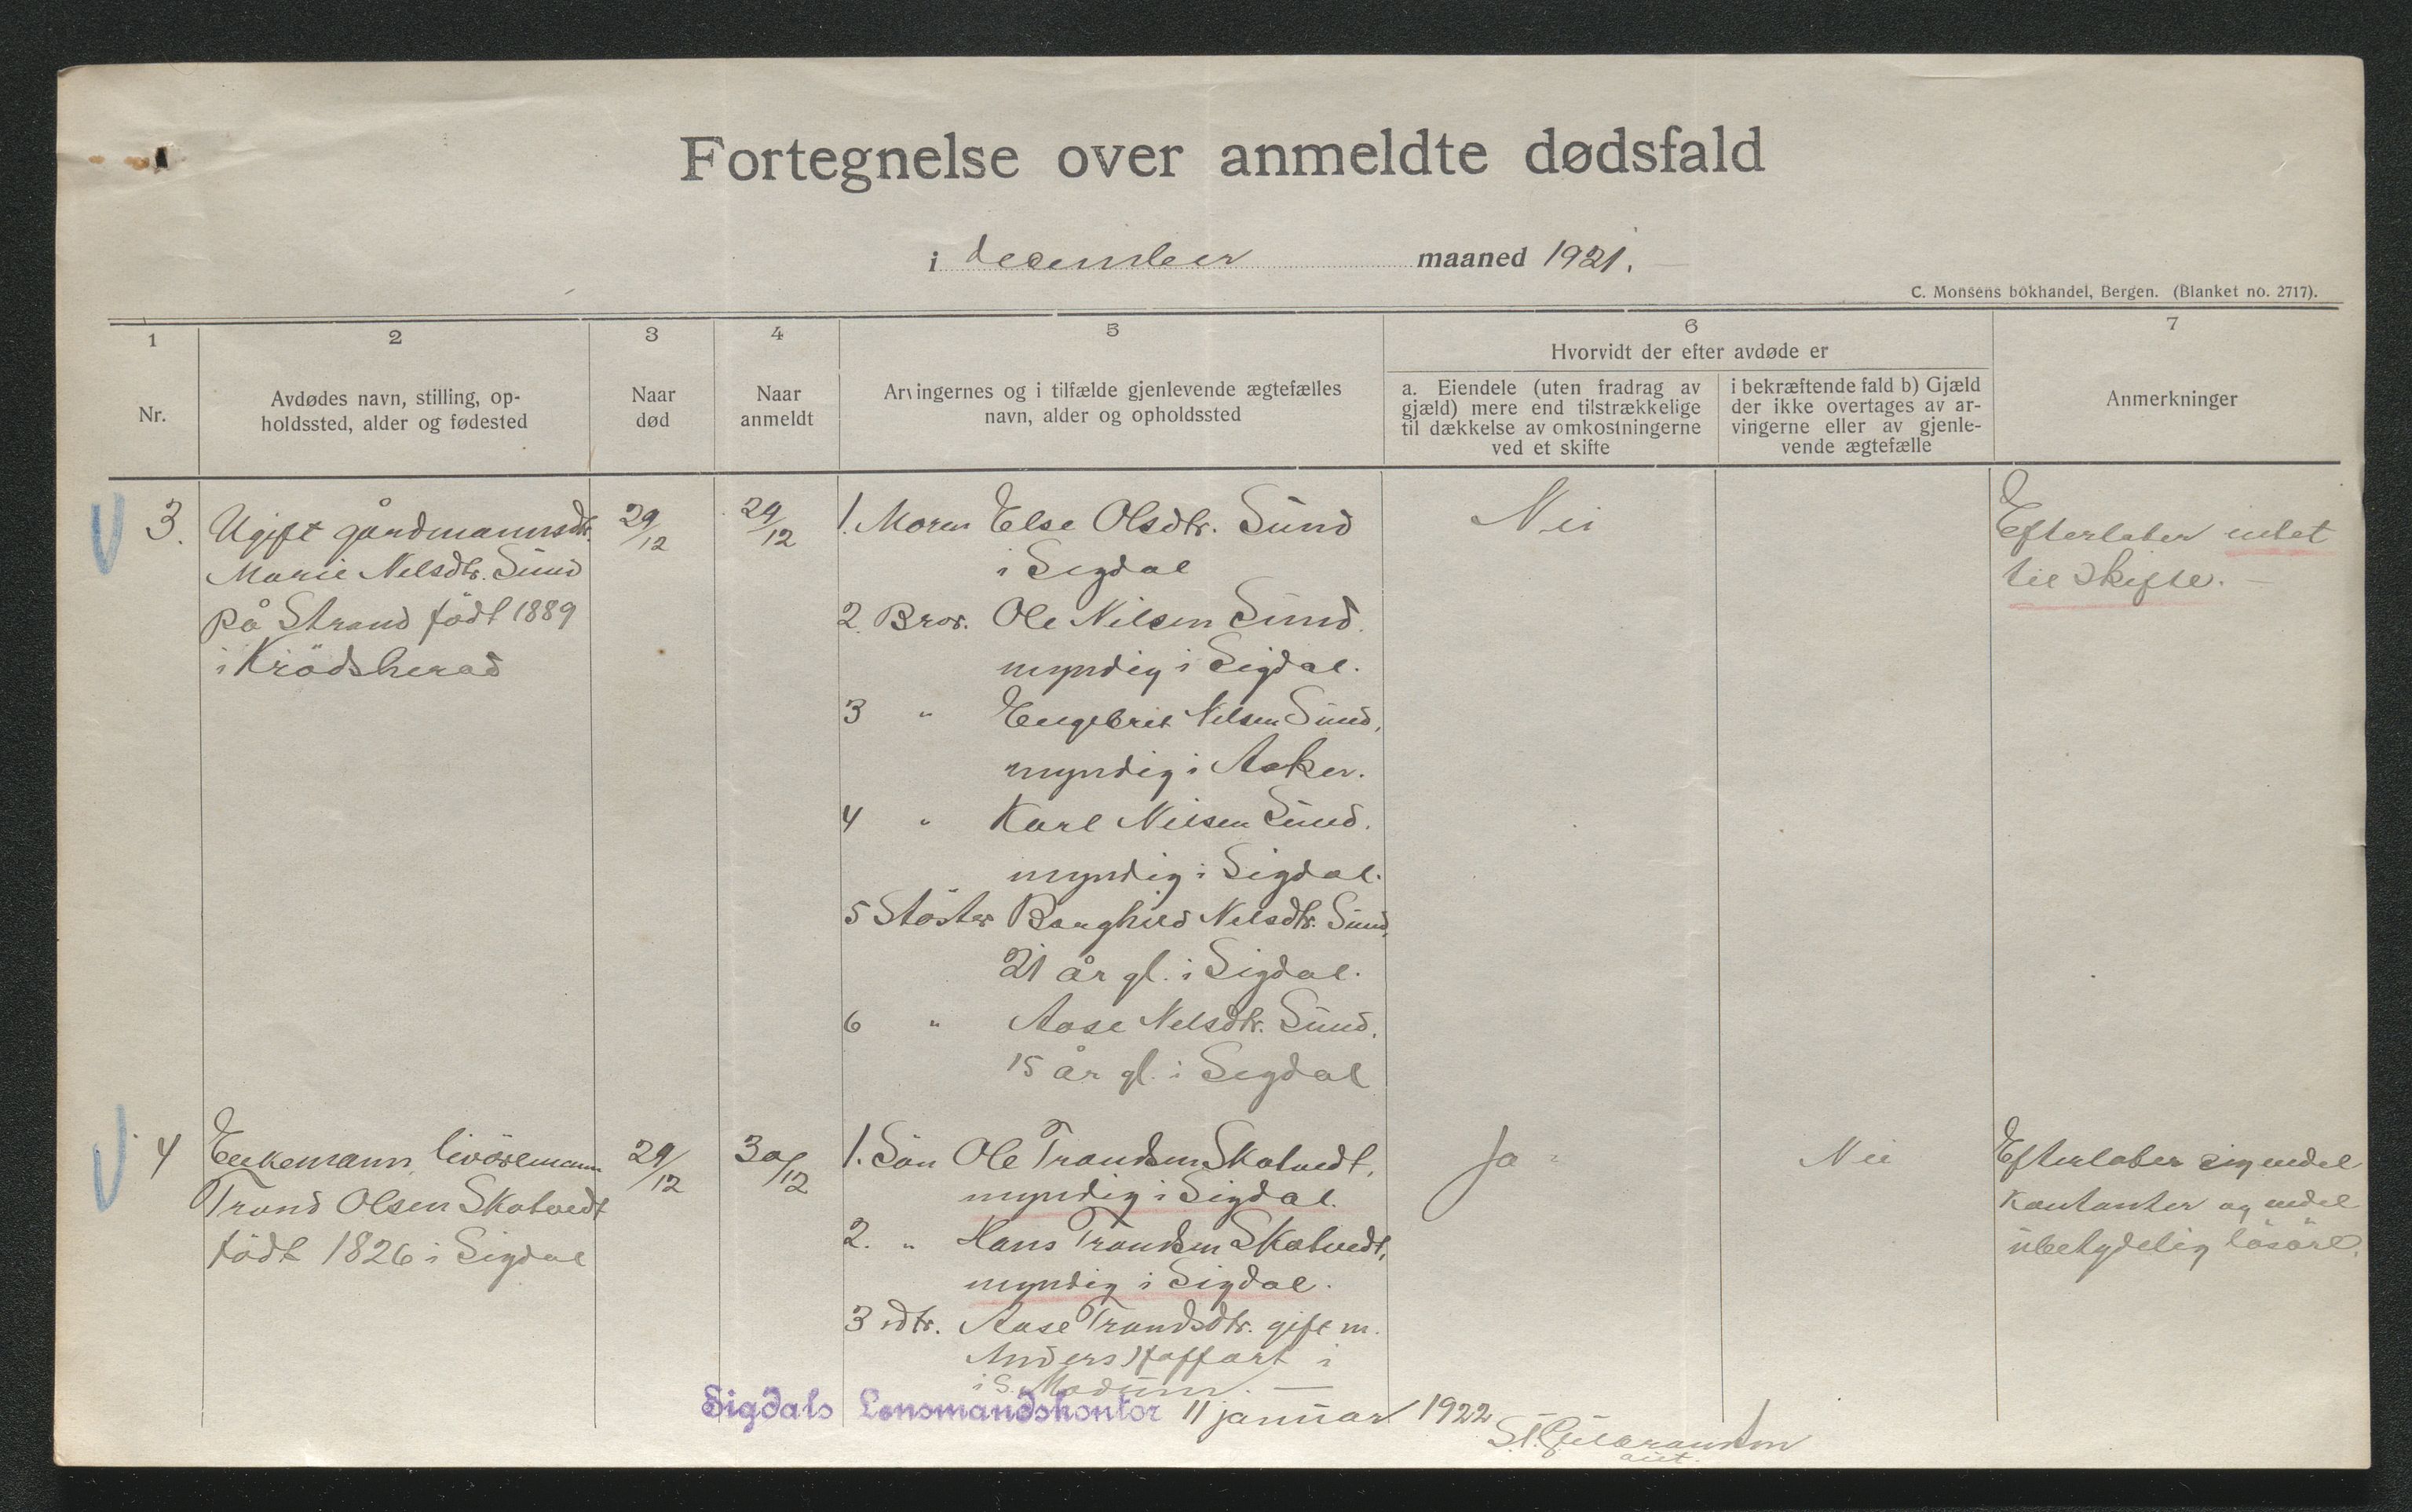 Fortegnelse over anmeldte dødsfald
i december maaned 1921.
C. Monsens bokhandel, Bergen. (Blanket no. 2717).
1
2
3
4
5
6
7
Nr.
Avdødes navn, stilling, op-
holdssted, alder og fødested
Naar
død
Naar
anmeldt
Arvingernes og i tilfælde gjenlevende ægtefælles
navn, alder og opholdssted
Hvorvidt der efter avdøde er
a. Eiendele (uten fradrag av
gjæld) mere end tilstrækkelige
til dækkelse av omkostningerne
ved et skifte
i bekræftende fald b) Gjæld
der ikke overtages av ar-
vingerne eller av gjenle-
vende ægtefælle
Anmerkninger
3.
Ugift gårdmannsdtr.
Marie Nelsdtr. Sund
på Strand født 1889
i Krödsherad
29/12
29/12
1. Moren Else Olsdtr. Sund
i Sigdal
2. Bror. Ole Nilsen Sund.
myndig i Sigdal.
3 " Engebret Nilsen Sund,
myndig i Asker.
4 " Karl Nilsen Sund.
myndig i Sigdal.
5 Söster Borghild Nelsdtr. Sund,
21 år gl. i Sigdal.
6 " Aase Nelsdtr. Sund.
15 år gl. i Sigdal
Nei
Efterlater intet
til skifte. —
4
Enkemann, livöremann
Trond Olsen Skatvedt
födt 1826 i Sigdal
29/12
30/12
1. Sön Ole Trondsen Skatvedt,
myndig i Sigdal.
2. " Hans Trondsen Skatvedt,
myndig i Sigdal.
3 dtr. Aase Trondsdtr. gift m.
Anders i
i S. Modum. —
Ja
Nei
Efterlater sig endel
kontanter og endel
ubetydelig lösöre.
Sigdals Lensmandskontor 11 januar 1922